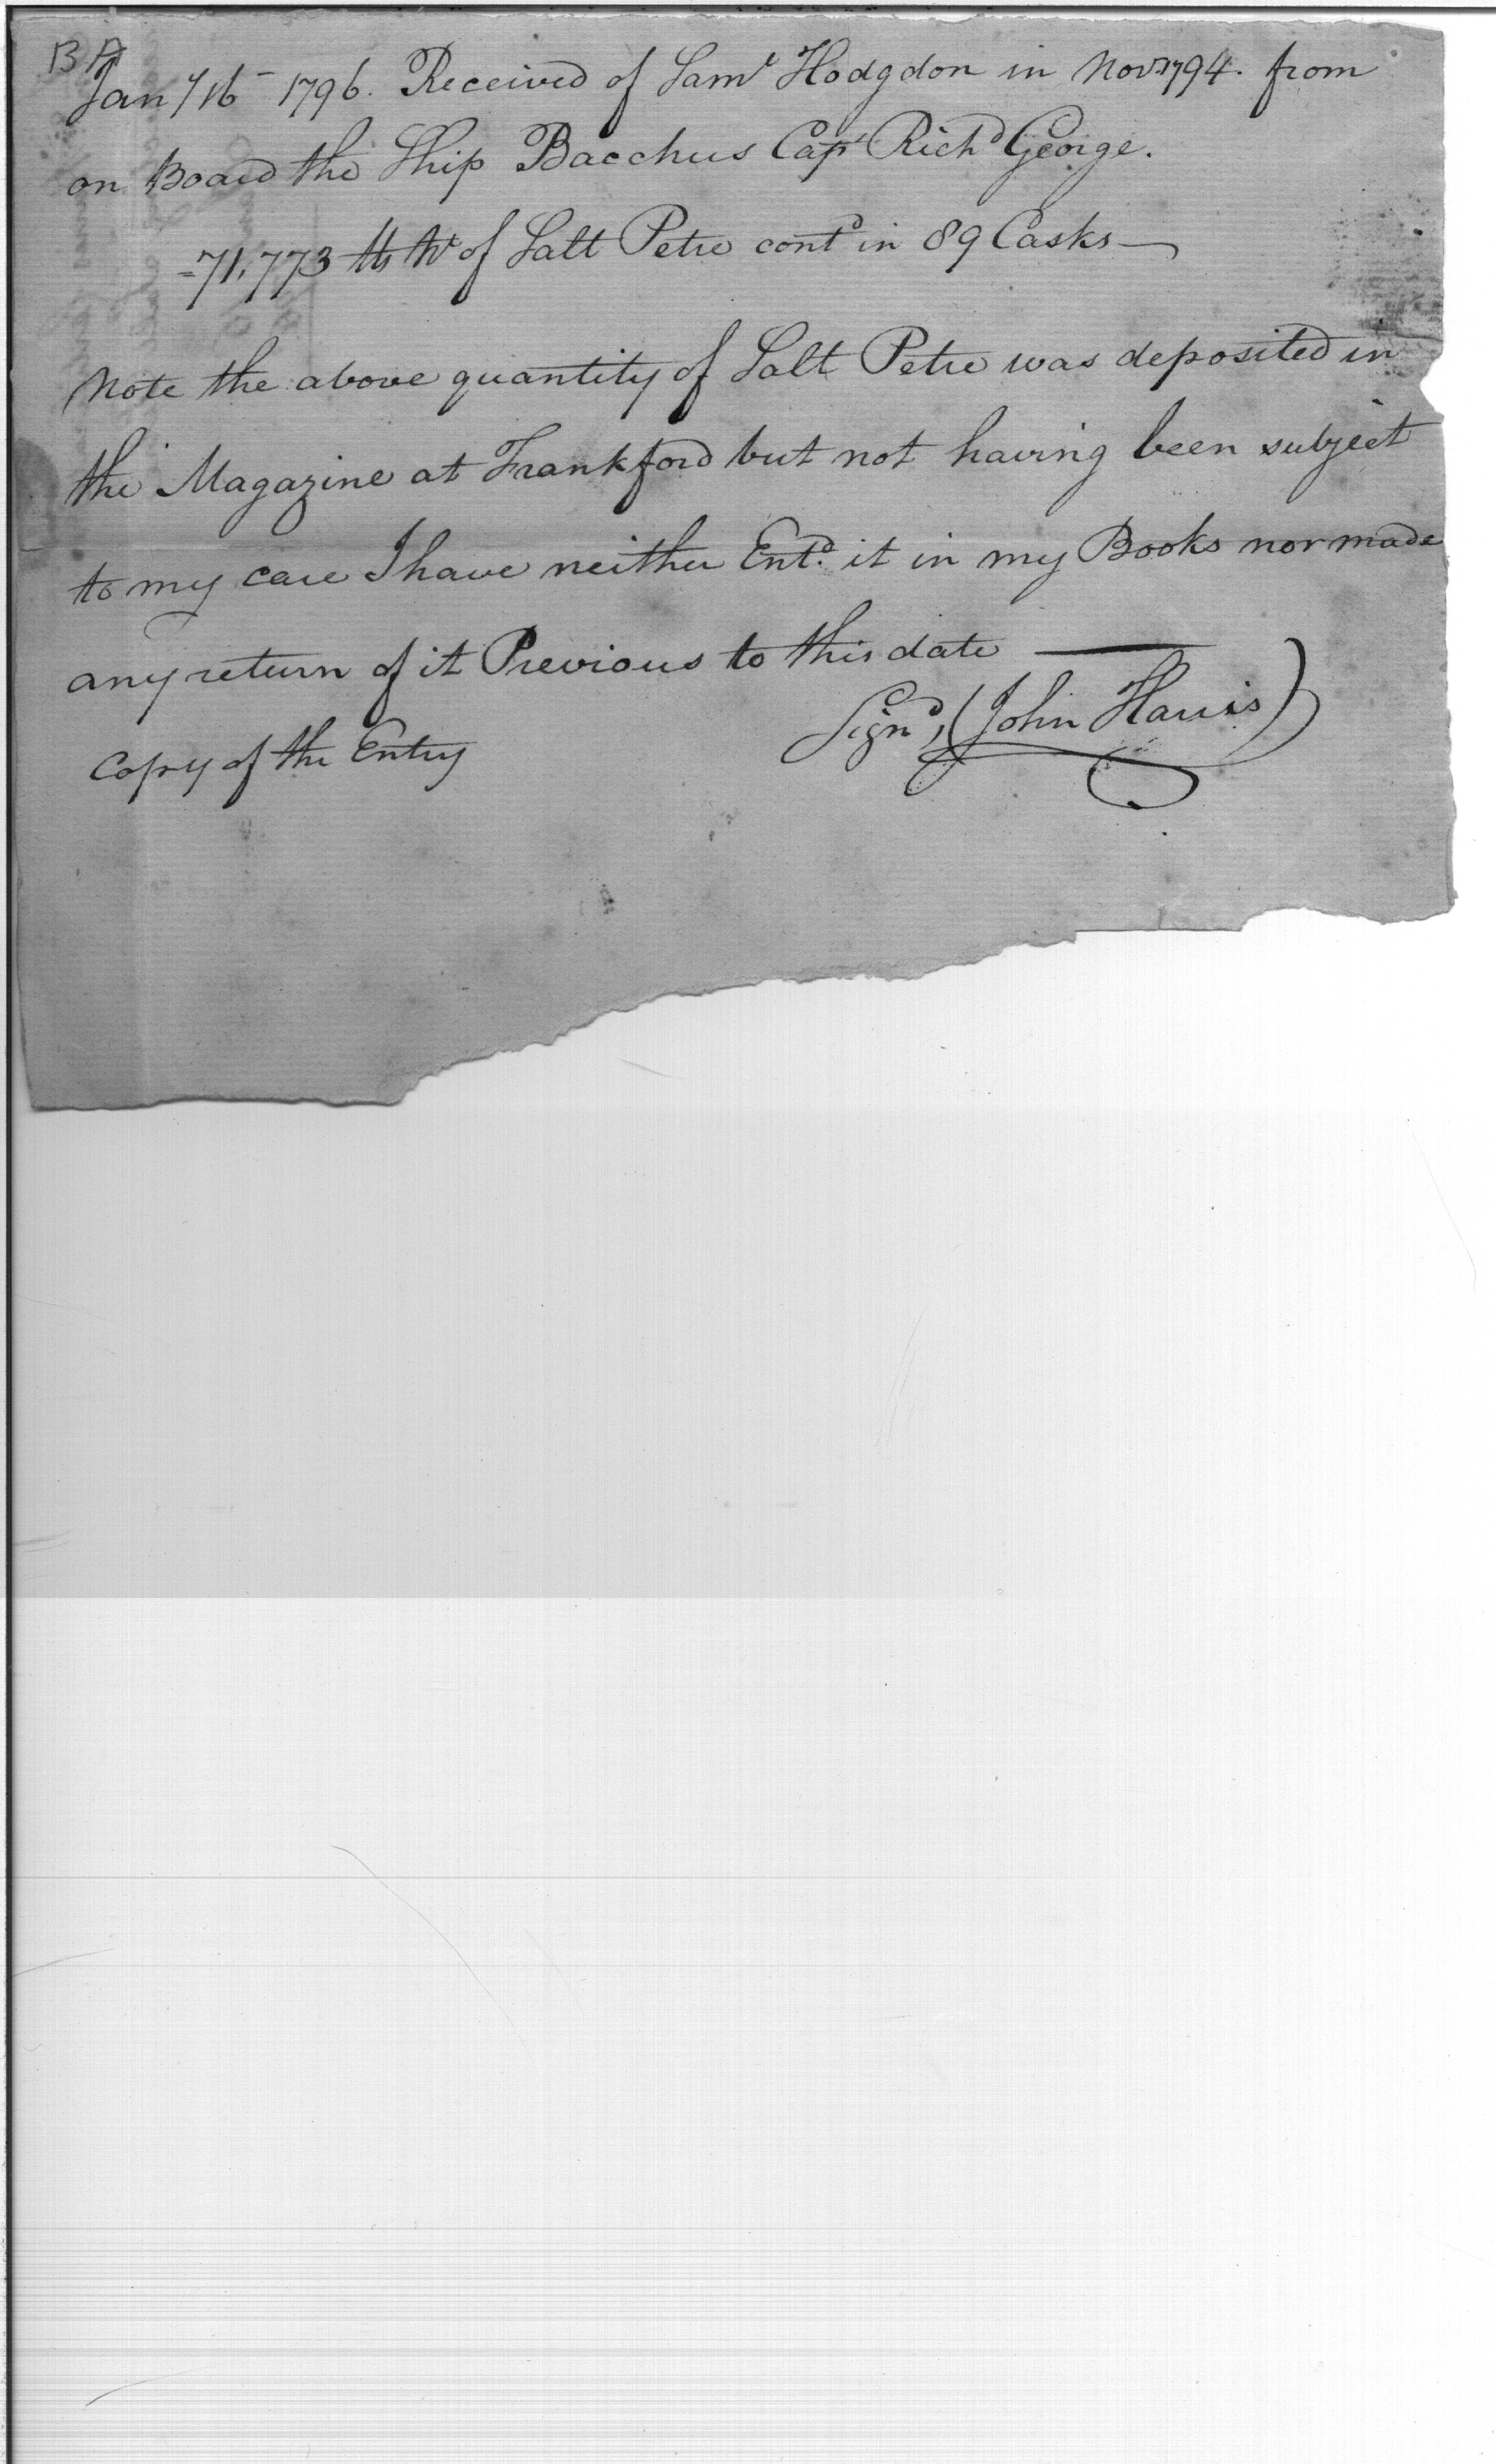 BA
Jany 16 1796. Received of Saml Hodgdon in Novr 1794. from
on Board the Ship Bacchus Capt Richd George.
=71,773 lb Wt of Salt Petre contd in 89 Casks—
Note the above quantity of Salt Petre was deposited in
the Magazine at Frankford but not having been subject
to my care I have neither Entd. it in my Books nor made
any return of it Previous to this date —
Signd, (John Harris)
Copy of the Entry